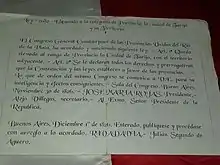 Ley 1826. Elevando a la categoría de Provincia la ciudad de Tarija
y su territorio.
El Congreso General Constituyente de las Provincias Unidas del Río
de la Plata, ha acordado y sancionado la siguiente ley.- Art. 1º Queda
elevada al rango de Provincia la Ciudad de Tarija, con el territorio
adyacente.- Art. 2º Se le declaran todos los derechos y prerrogativas
que la Constitución y las leyes establecen a favor de las provincias.
De orden del mismo Congreso se comunica a V.E. para su
inteligencia y efectos consiguientes.- Sala del Congreso, Buenos Aires,
Noviembre 30 de 1826.- JOSE MARIA ROJAS, Presidente.-
Alejo Villegas, secretario.- Al Exmo. Señor Presidente de la
República.
Buenos Aires, Diciembre 1º de 1826. Enterado, publíquese y procédase
con arreglo a lo acordado. RIVADAVIA.- Julián Segundo de
Agüero.